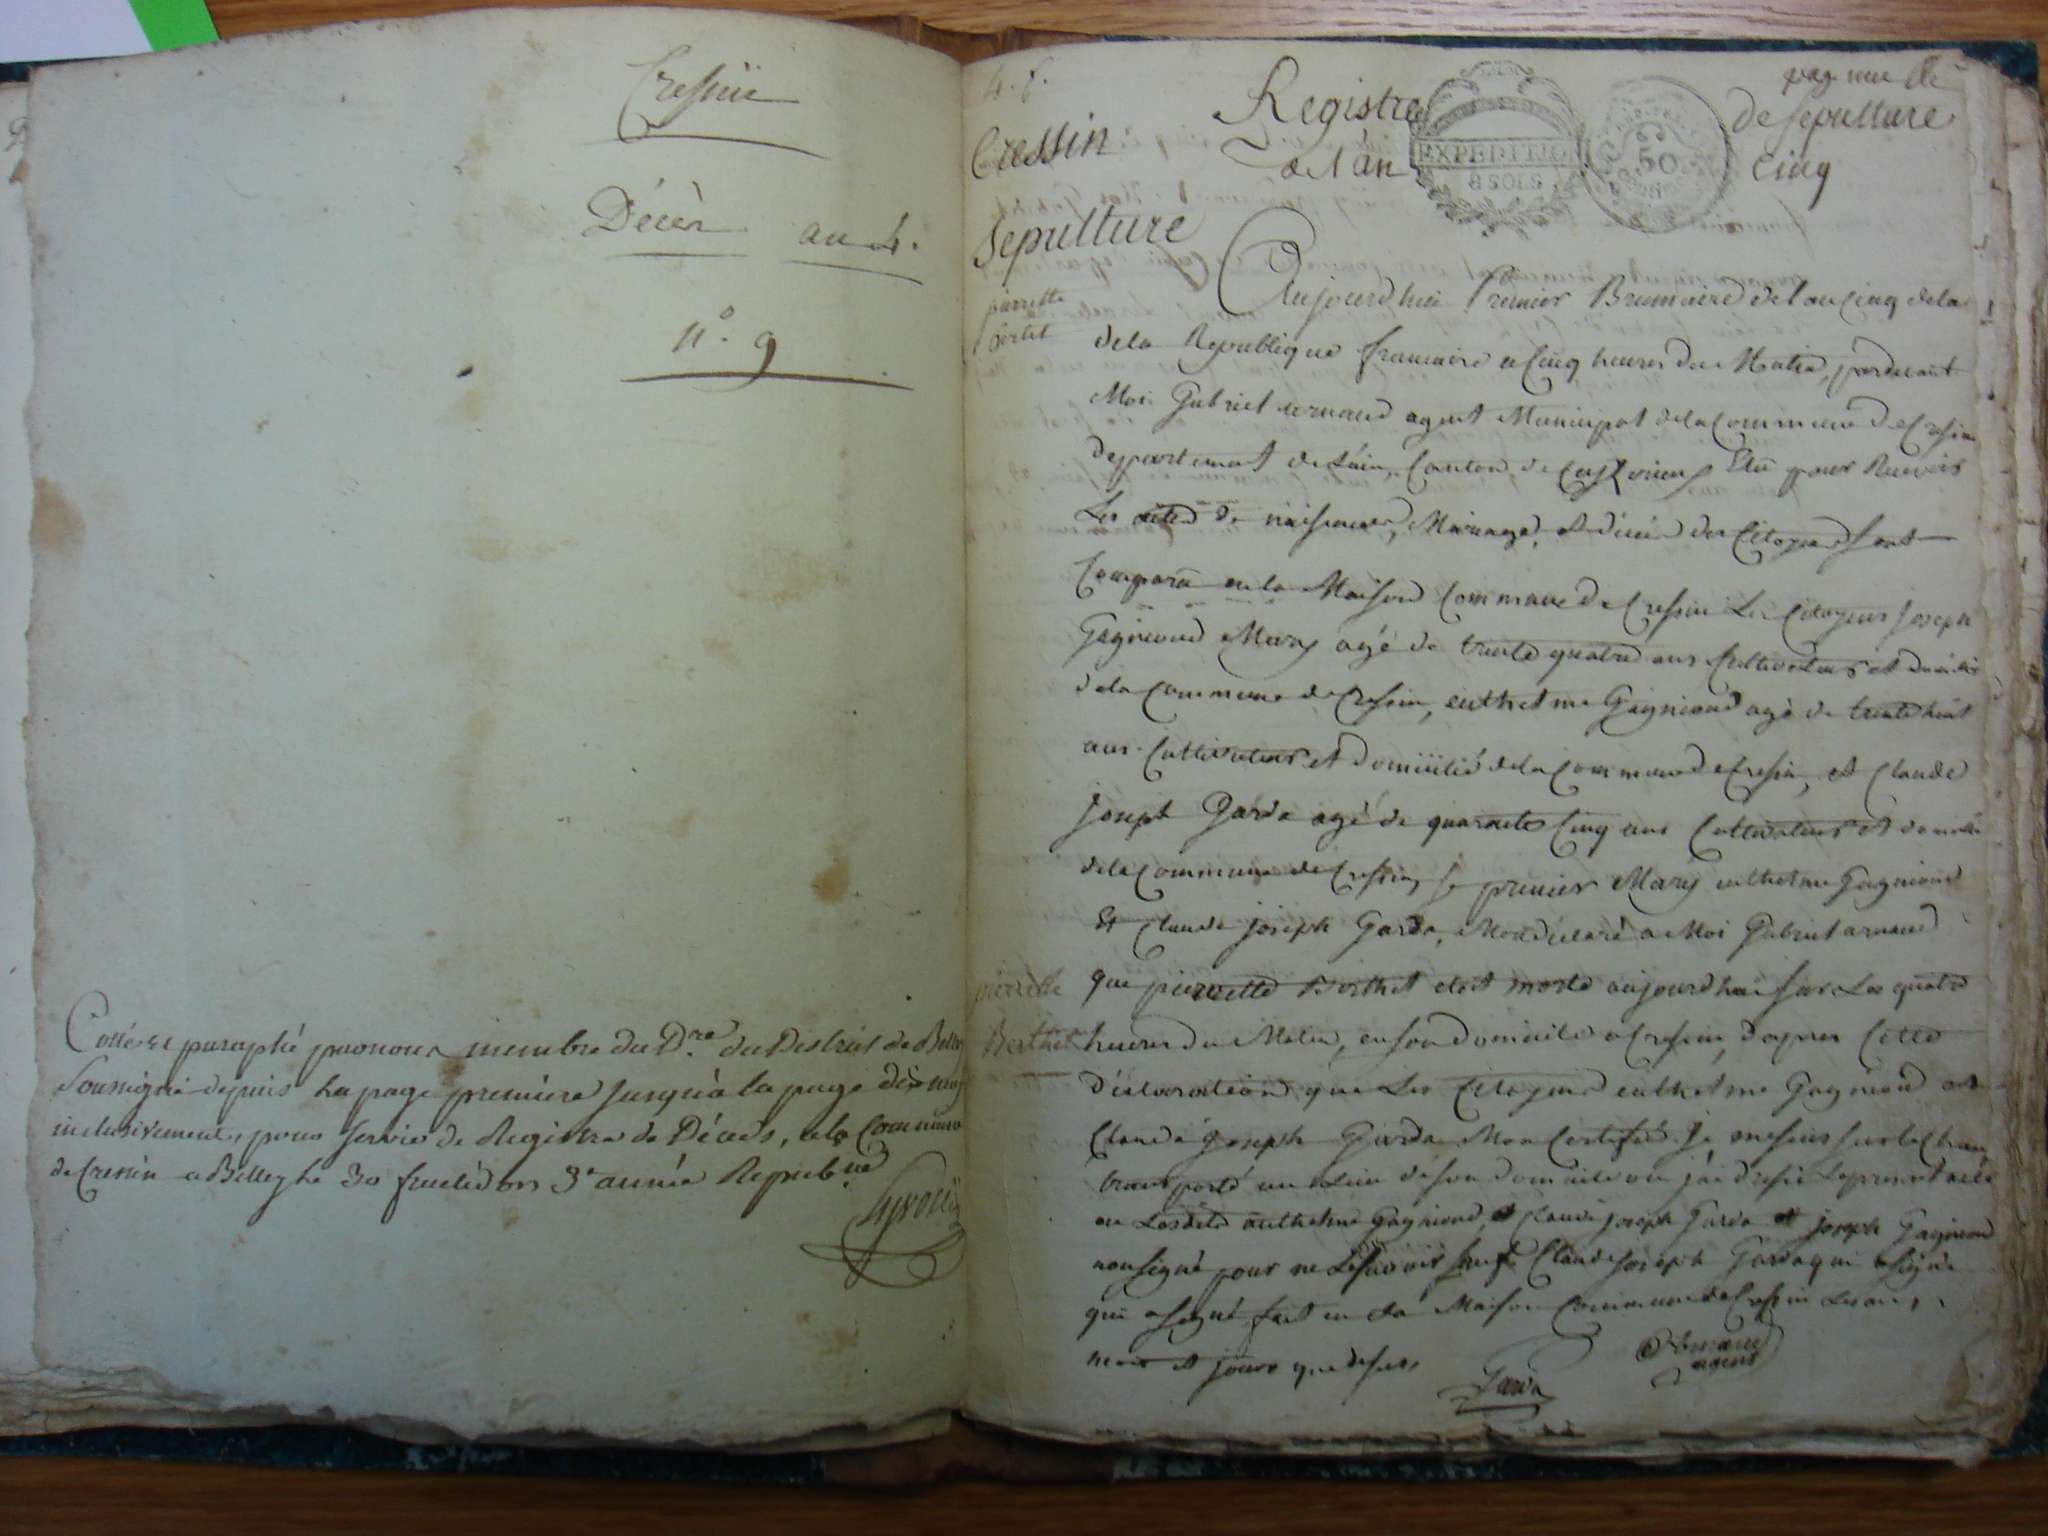 Cressin
Décès an 4.
n.o 9
Cotté et paraphé par nous membre du D.re du District de Belley
Soussigné depuis la page première jusqu'à la page dix neuf
inclusivement, pour servir de Registre de Décès, à la Commune
de Cressin a Belley le 30 fructidor 3e année Republ.ne
4. f.
page une
Cressin Registre de sepulture
de l'an Cinq
EXPEDITION
8 SOLS
50
sepulture
pierrette
bertet
Aujourd'hui Premier Brumaire de l'an Cinq dela
dela Republique francaise a Cinq heures du Matin, pardevant
Moi Gabriel arnaud agent Municipal dela Commune de Cressin
departement de l'ain, Canton de Ceyzerieux Elu pour Recevoir
Les actes de naissances, Mariage, et décès des Citoyens sont
Comparu en la Maison Commune de Cressin Les Citoyens joseph
Gagnioud Mary agé de trente quatre ans Cultivateur et domicilié
dela Commune de Cressin, enthelme Gagnioud agé de trente huit
ans Cultivateur et domicilié dela Commune de Cressin, et Claude
joseph Garda agé de quarante Cinq ans Cultivateur et domicilié
dela Commune de Cressin, le premier Mary enthelme Gagnioud
Et Claude joseph Garda, Mon déclaré a Moi Gabriel arnaud
pierrette
Berthet
que pierrette Berthet etoit morte aujourd'hui sur Les quatre
heures du Matin, en son domicile a Cressin, d'apres Cette
déclaration que Les Citoyens enthelme Gagnioud et
Claude joseph Garda Mon Certifié je me suis sur le Champ
transporté au Lieu de son domicile ou j'ai dressé Le present acte
ou Lesdits anthelme Gagnioud, et Claude joseph Garda et joseph Gagnioud
non signé pour ne Le savoir sauf Claude joseph Garda qui a signé
qui a signé fait en la Maison Commune de Cressin Les an,
mois et jours que dessus
Garda
Arnaud
agent